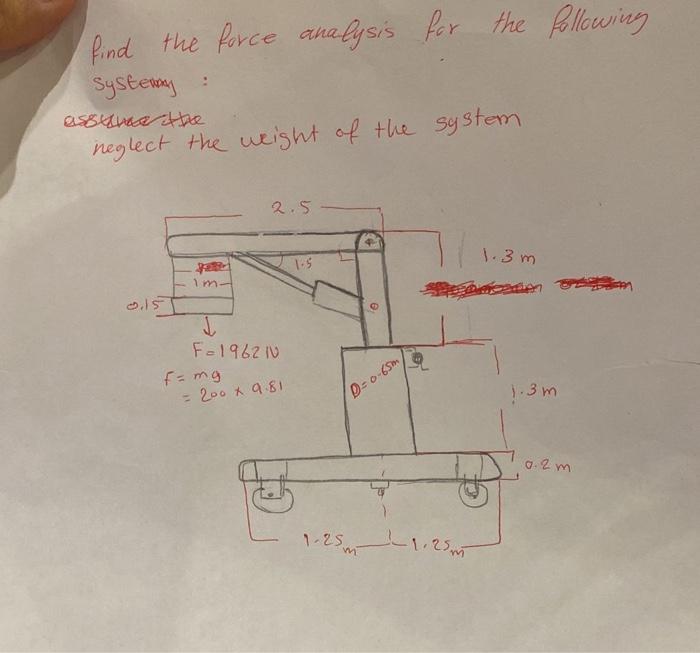 find the force analysis for the following
system :
neglect the weight of the system
2.5
1.3 m
1.5
1m
0.15
F=1962 N
F= mg
= 200 x 9.81
D=0.65m
1.3 m
0.2 m
1.25m
1.25m